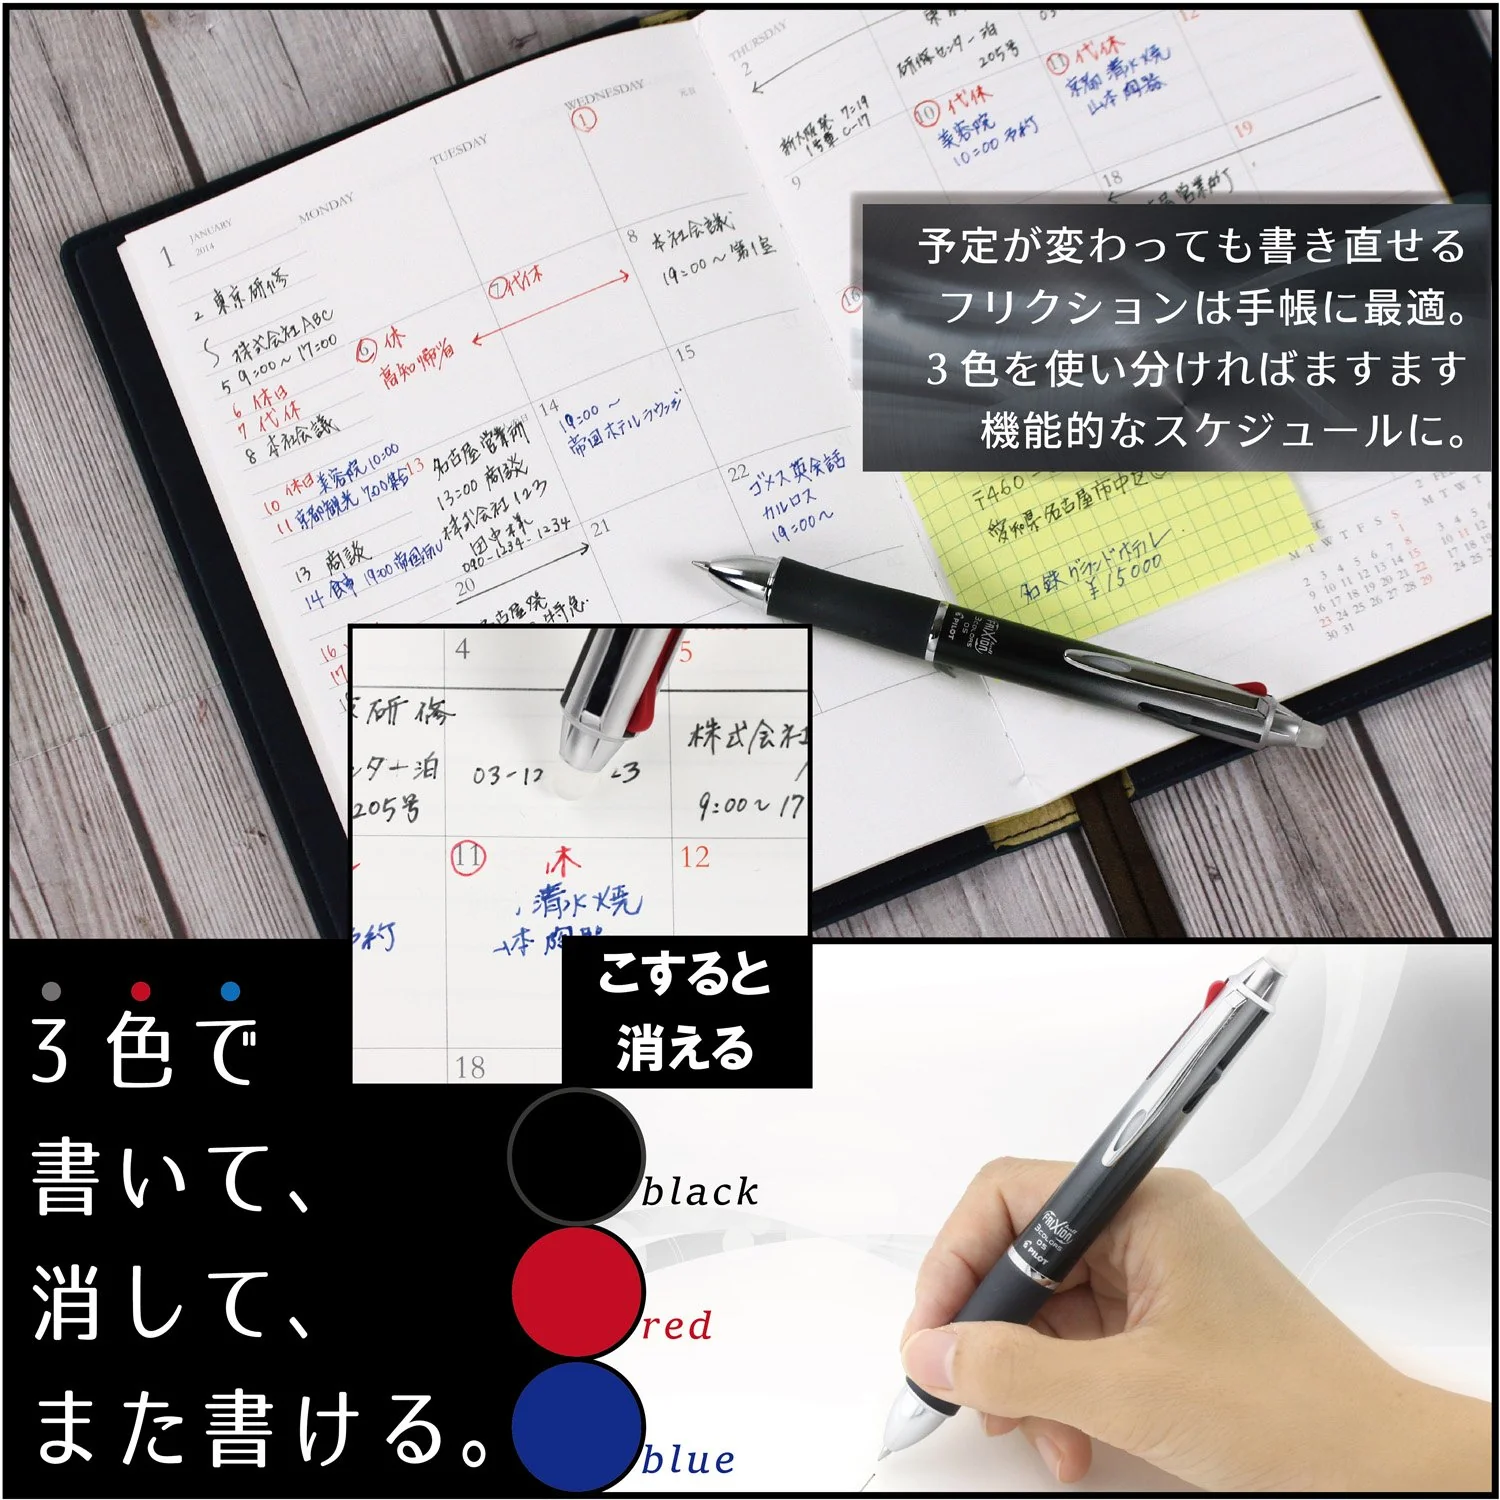 1
JANUARY
2014
MONDAY
TUESDAY
WEDNESDAY
THURSDAY
2 東京研修
株式会社ABC
5 9:00〜17:00
6 休日
7 代休
8 本社会議
10 休日 美容院 10:00
11 京都観光 7:00集合
13 商談
14 食事 19:00 帝国ホテル
16
17
1
6 休
高知帰省
7 代休
8
本社会議
19:00〜 第1室
13
名古屋営業所
13:00 商談
株式会社123
田中様
090-1234-1234
14
19:00〜
帝国ホテルラウンジ
15
20
21
22
ゴメス英会話
カルロス
19:00〜
2
研修センター泊
205号
新大阪発 7:19
1号車 C-17
9
10 代休
美容院
10:00 予約
11 代休
京都 清水焼
山本 陶器
12
16
18
19
予定が変わっても書き直せる
フリクションは手帳に最適。
3色を使い分ければますます
機能的なスケジュールに。
〒460
愛知県名古屋市中区
名鉄グランドホテル
¥15000
FRIXION ball
3COLORS
05
PILOT
4
5
研修
ンター泊
205号
03-12
株式会社
9:00〜17
11 休
清水焼
本 陶器
予約
12
18
こすると
消える
3色で
書いて、
消して、
また書ける。
black
red
blue
FRIXION ball
3COLORS
05
PILOT